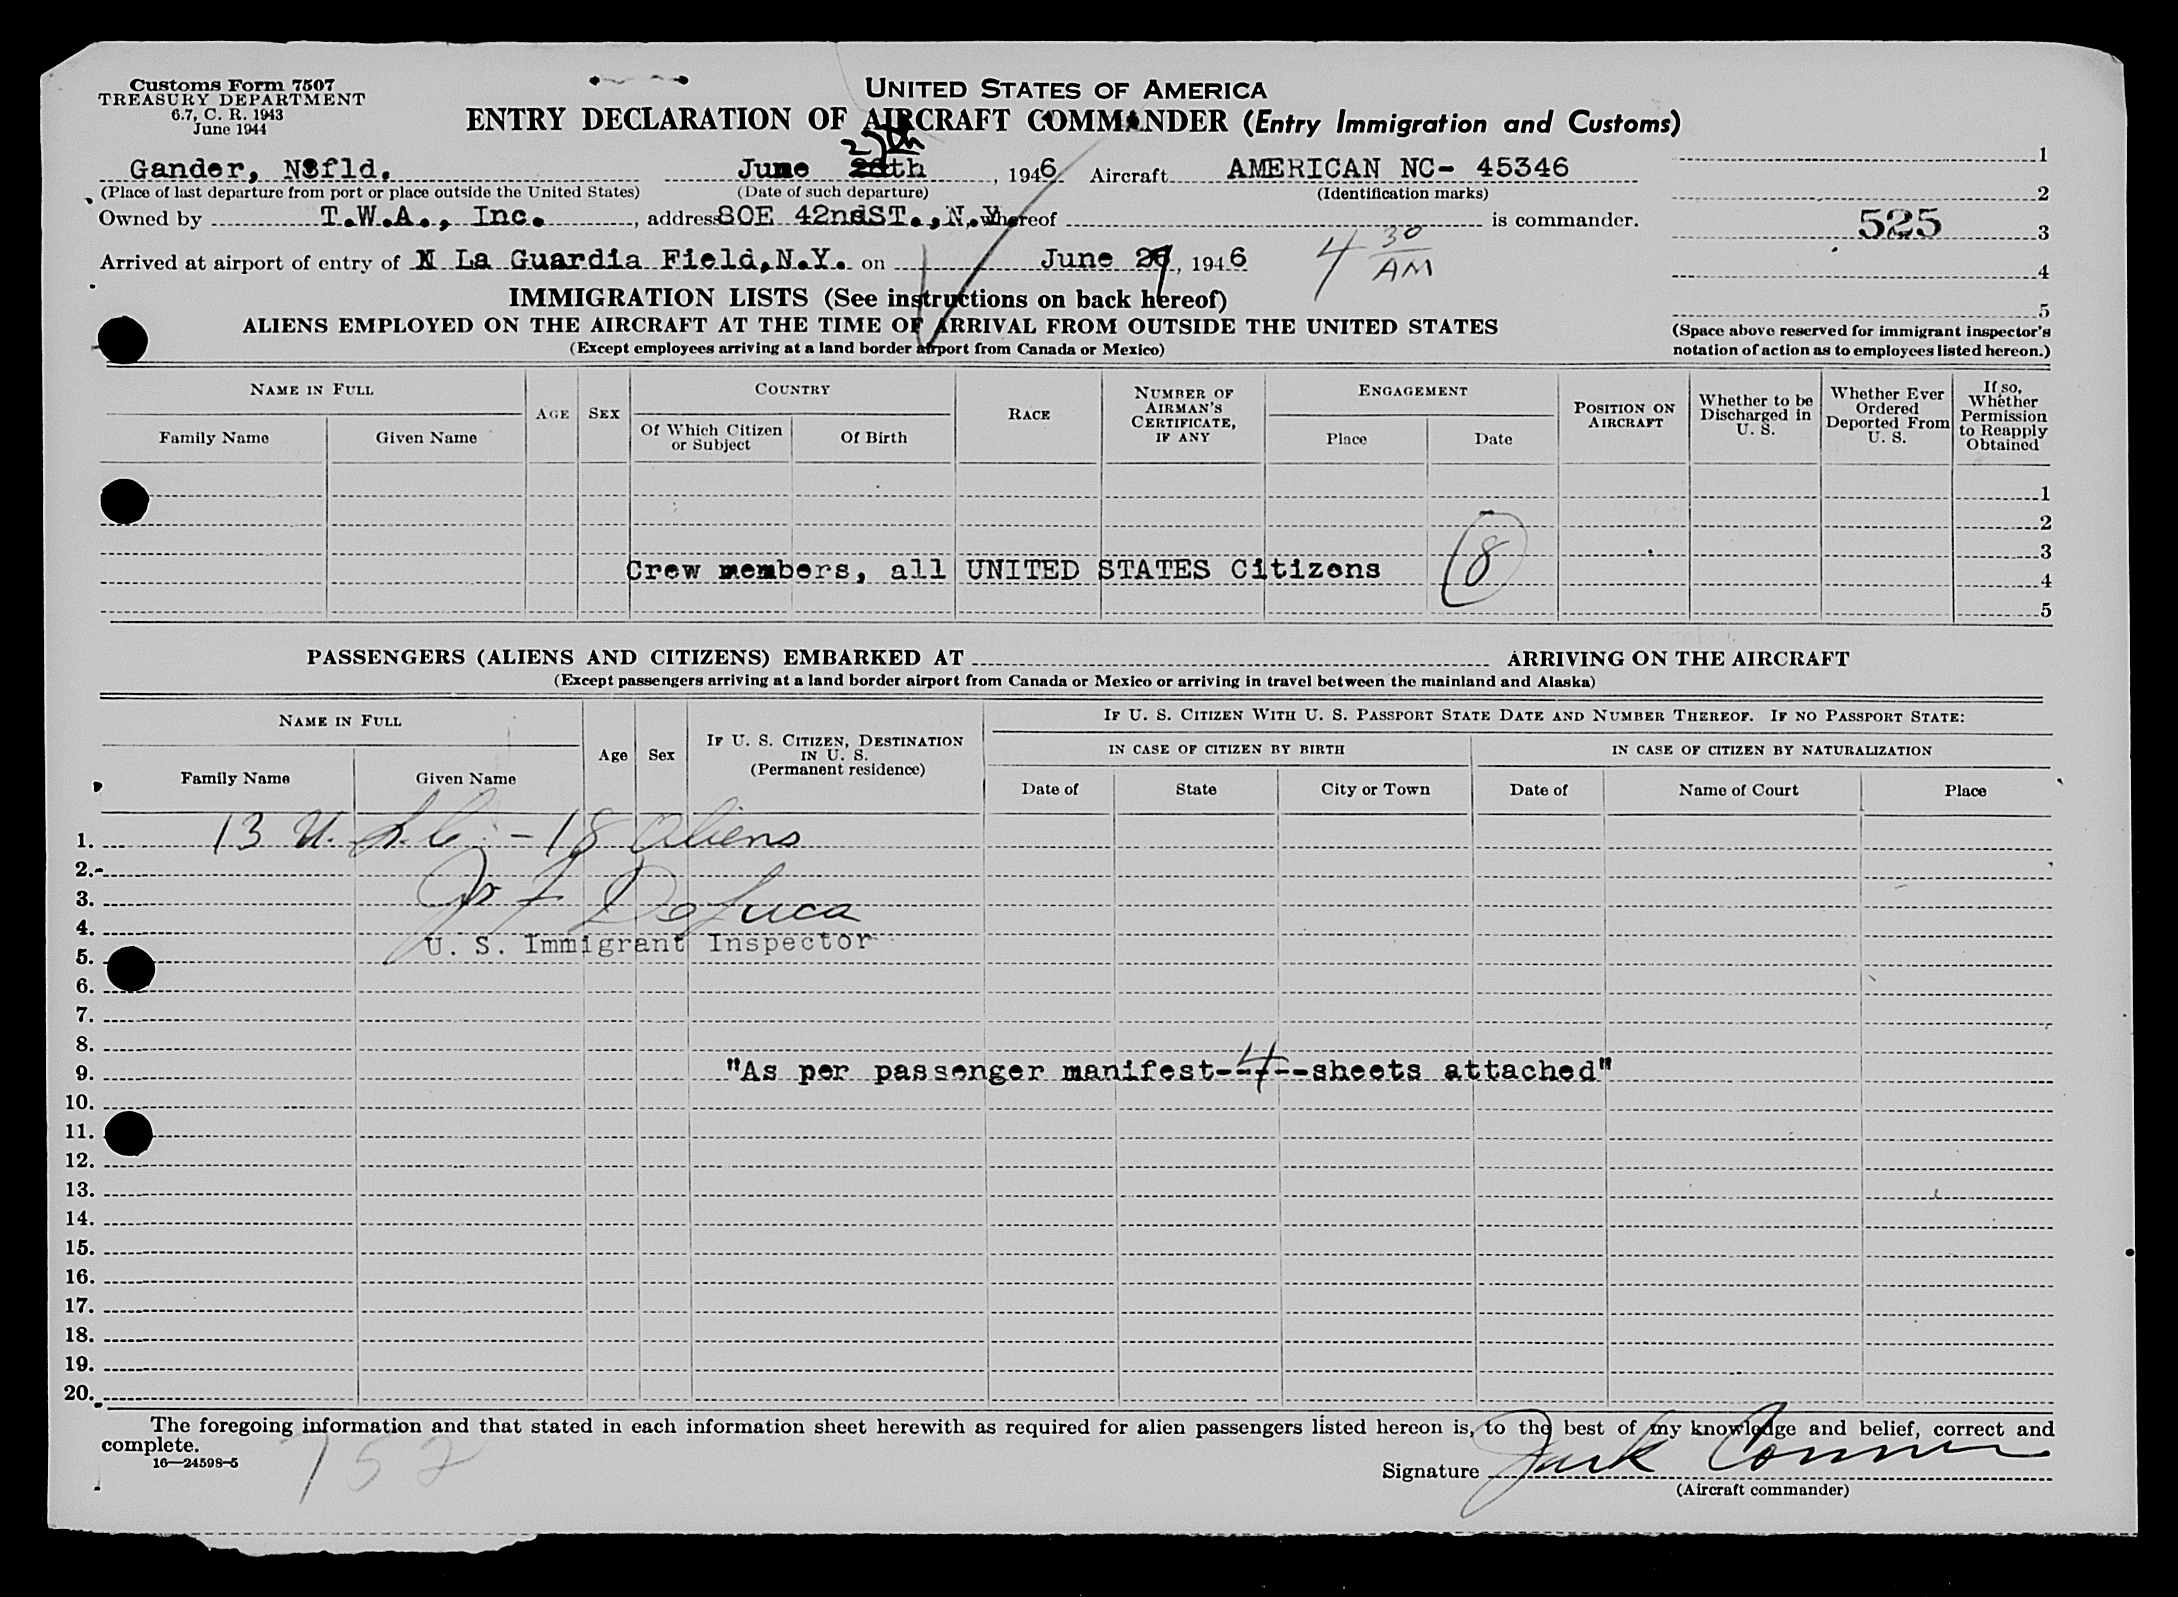 Customs Form 7507
TREASURY DEPARTMENT
6.7, C. R. 1943
June 1944
UNITED STATES OF AMERICA
ENTRY DECLARATION OF AIRCRAFT COMMANDER (Entry Immigration and Customs)
25th
Gander, Nfld. June th, 1946 Aircraft AMERICAN NC- 45346
(Place of last departure from port or place outside the United States) (Date of such departure) (Identification marks)
Owned by T.W.A., Inc. , address 80E 42ndST.,N.Y. whereof is commander.
Arrived at airport of entry of La Guardia Field,N.Y. on June 2 , 1946 4 30 AM
1
2
525 3
4
5
(Space above reserved for immigrant inspector's
notation of action as to employees listed hereon.)
IMMIGRATION LISTS (See instructions on back hereof)
ALIENS EMPLOYED ON THE AIRCRAFT AT THE TIME OF ARRIVAL FROM OUTSIDE THE UNITED STATES
(Except employees arriving at a land border airport from Canada or Mexico)
NAME IN FULL
Family Name Given Name
AGE SEX
COUNTRY
Of Which Citizen or Subject Of Birth
RACE
NUMBER OF AIRMAN'S CERTIFICATE, IF ANY
ENGAGEMENT
Place Date
POSITION ON AIRCRAFT
Whether to be Discharged in U. S.
Whether Ever Ordered Deported From U. S.
If so, Whether Permission to Reapply Obtained
1
2
3
Crew members, all UNITED STATES Citizens 8
4
5
PASSENGERS (ALIENS AND CITIZENS) EMBARKED AT ARRIVING ON THE AIRCRAFT
(Except passengers arriving at a land border airport from Canada or Mexico or arriving in travel between the mainland and Alaska)
NAME IN FULL
Family Name Given Name
Age Sex
IF U. S. CITIZEN, DESTINATION IN U. S. (Permanent residence)
IF U. S. CITIZEN WITH U. S. PASSPORT STATE DATE AND NUMBER THEREOF. IF NO PASSPORT STATE:
IN CASE OF CITIZEN BY BIRTH IN CASE OF CITIZEN BY NATURALIZATION
Date of State City or Town Date of Name of Court Place
1. 13 U.S.C. - 18 Aliens
2.
3. DeLuca
4.
U. S. Immigrant Inspector
5.
6.
7.
8.
9. "As per passenger manifest--4--sheets attached"
10.
11.
12.
13.
14.
15.
16.
17.
18.
19.
20.
The foregoing information and that stated in each information sheet herewith as required for alien passengers listed hereon is, to the best of my knowledge and belief, correct and
complete.
16—24598-5
752
Signature Jack Connor
(Aircraft commander)